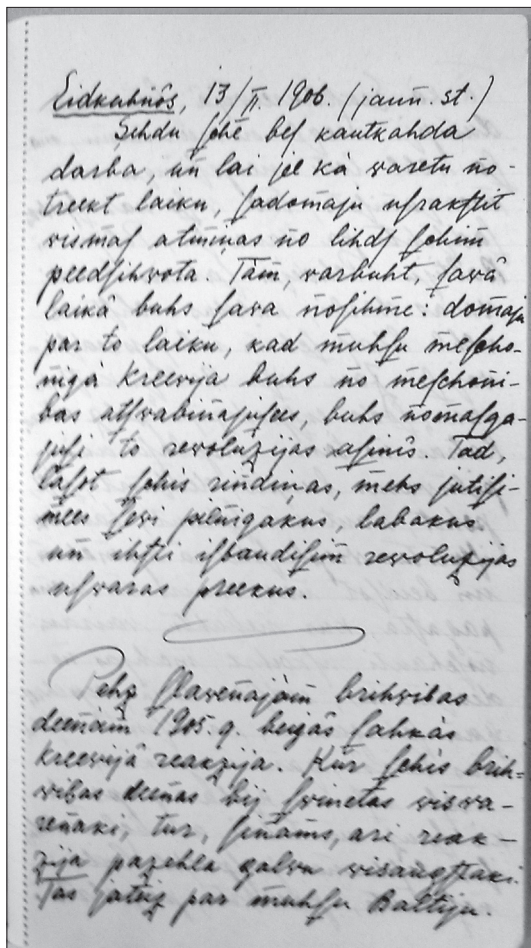 Eidkuhnôs, 13/II. 1906. (jaun. st.)
Sehdu schê bes kautkahda
darba, un lai jel kâ waretu no-
treekt laiku, sadomaju usrakstit
wismas atminas no lihds schim
peedsihwota. Tâm, warbuht, sawâ
laikâ buhs sawa nosihme: domaju
par to laiku, kad muhsu mescho-
nigâ Kreewija buhs no meschoni-
bas atswabinajusees, buhs nomasga-
jusi to rewoluzijas asinîs. Tad,
lasot schis rindiņas, mehs jutisi-
mees sewi pilnigakus, labakus
un ihsti isbaudisim rewoluzijas
uswaras preekus.
Pehz slawenajâm brihwibas
deenâm 1905. g. beigâs sahkâs
Kreewijâ reakzija. Kur schis brih-
wibas deenas bij swinetas wiswa-
renaki, tur, sinams, ari reak-
zija pazehla galwu wisaugstaki.
Tas jateiz par muhsu Baltiju.